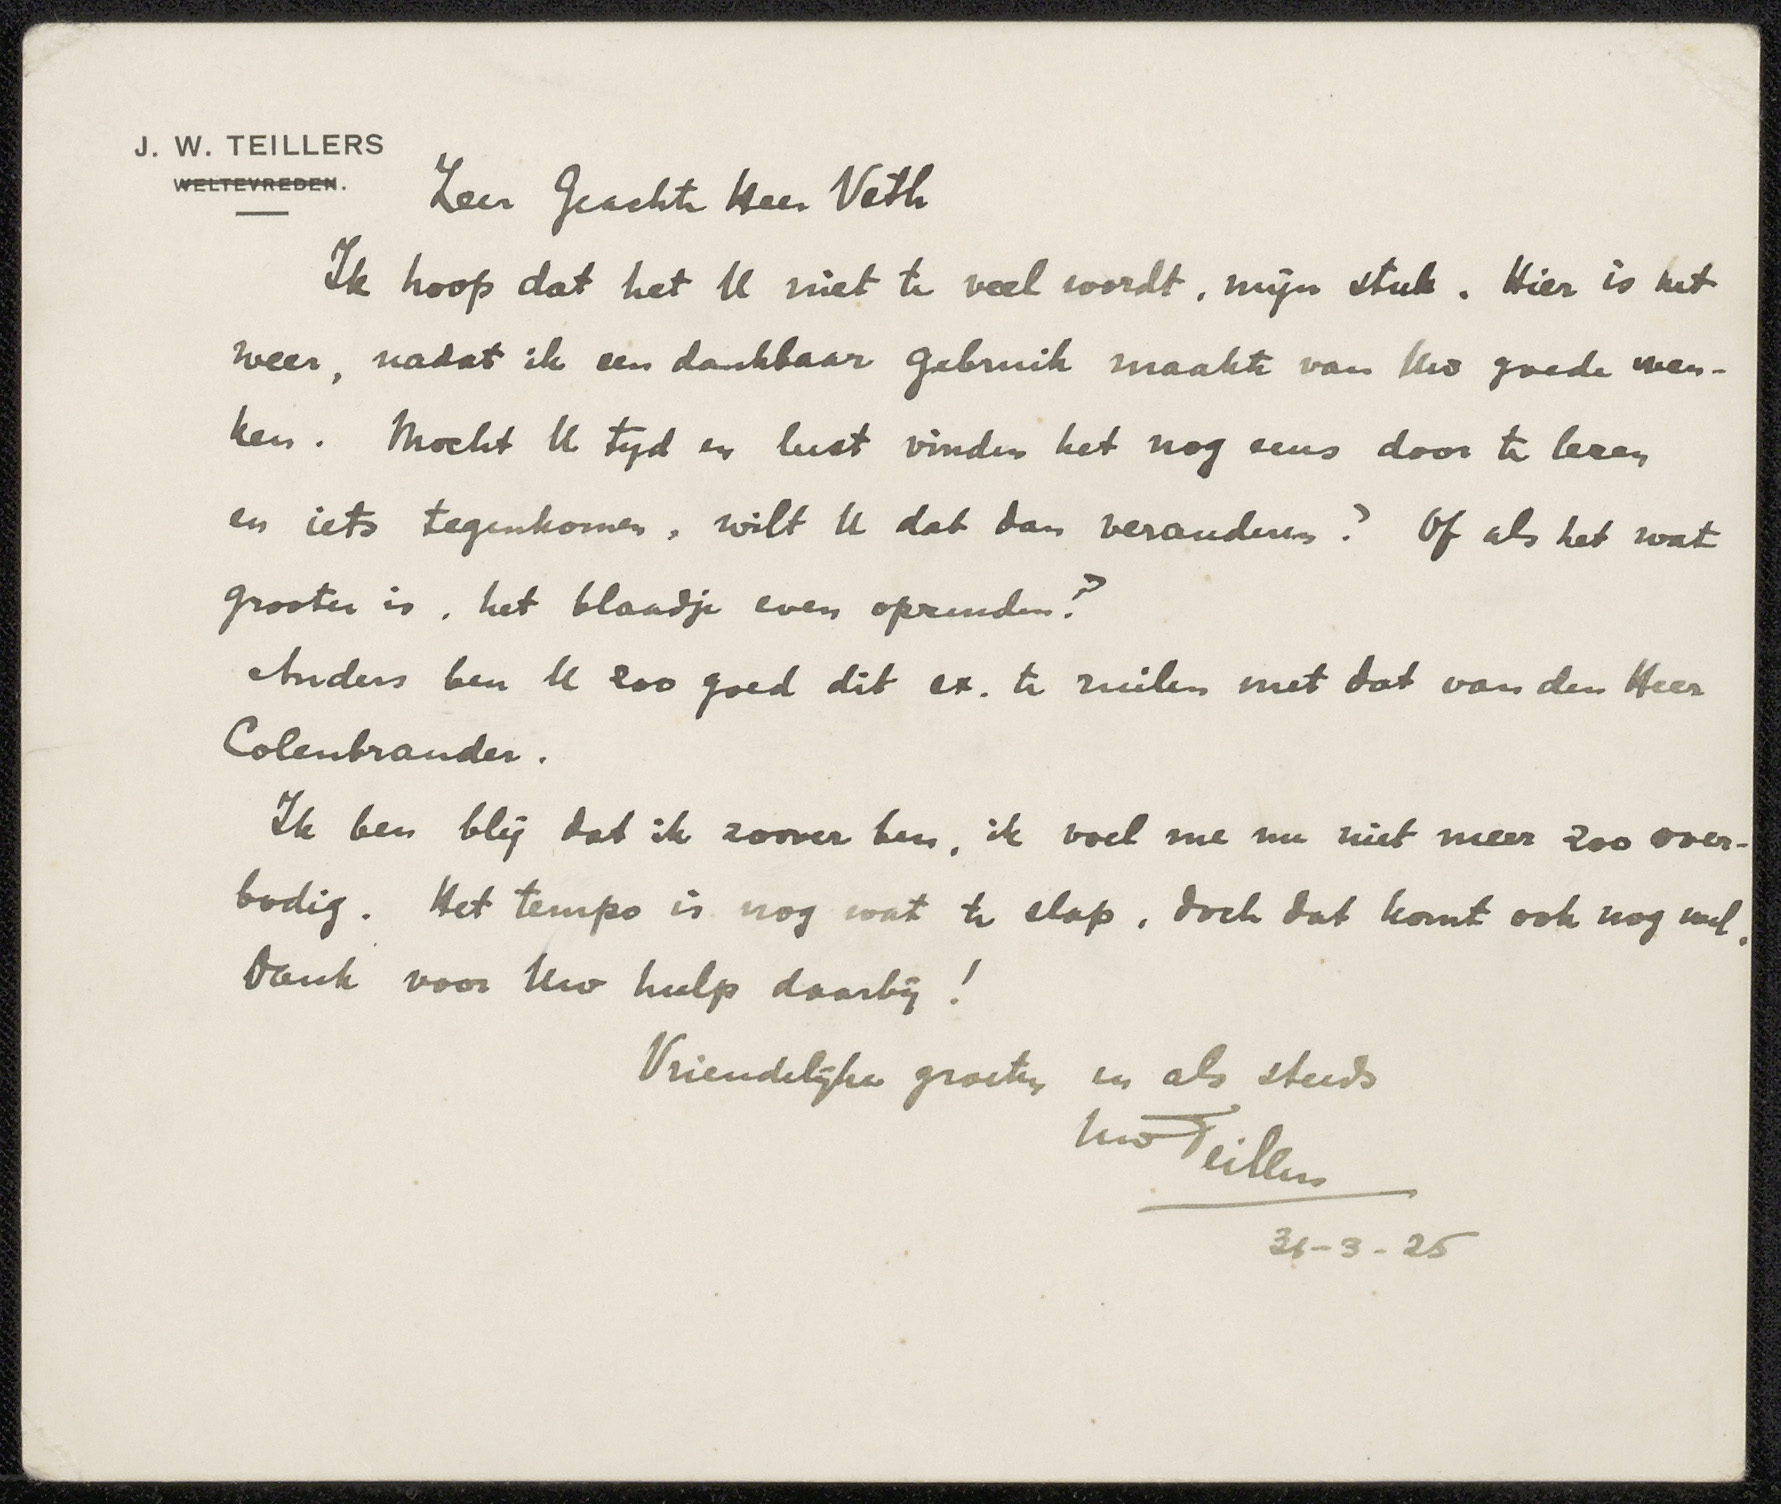 J. W. TEILLERS
WELTEVREDEN.
Zeer Geachte Heer Veth
Ik hoop dat het U niet te veel wordt, mijn stuk. Hier is het
weer, nadat ik een dankbaar gebruik maakte van Uw goede wen-
ken. Mocht U tyd en lust vinden het nog eens door te lezen
en iets tegenkomen, wilt U dat dan veranderen? Of als het wat
grooter is, het blaadje even opzenden?
Anders ben U zoo goed dit ex. te ruilen met dat van den Heer
Colenbrander.
Ik ben blij dat ik zoover ben, ik voel me nu niet meer zoo over-
bodig. Het tempo is nog wat te slap, doch dat komt ook nog wel.
Dank voor Uw hulp daarbij!
Vriendelijke groeten en als steeds
Uw Teillers
31-3-25